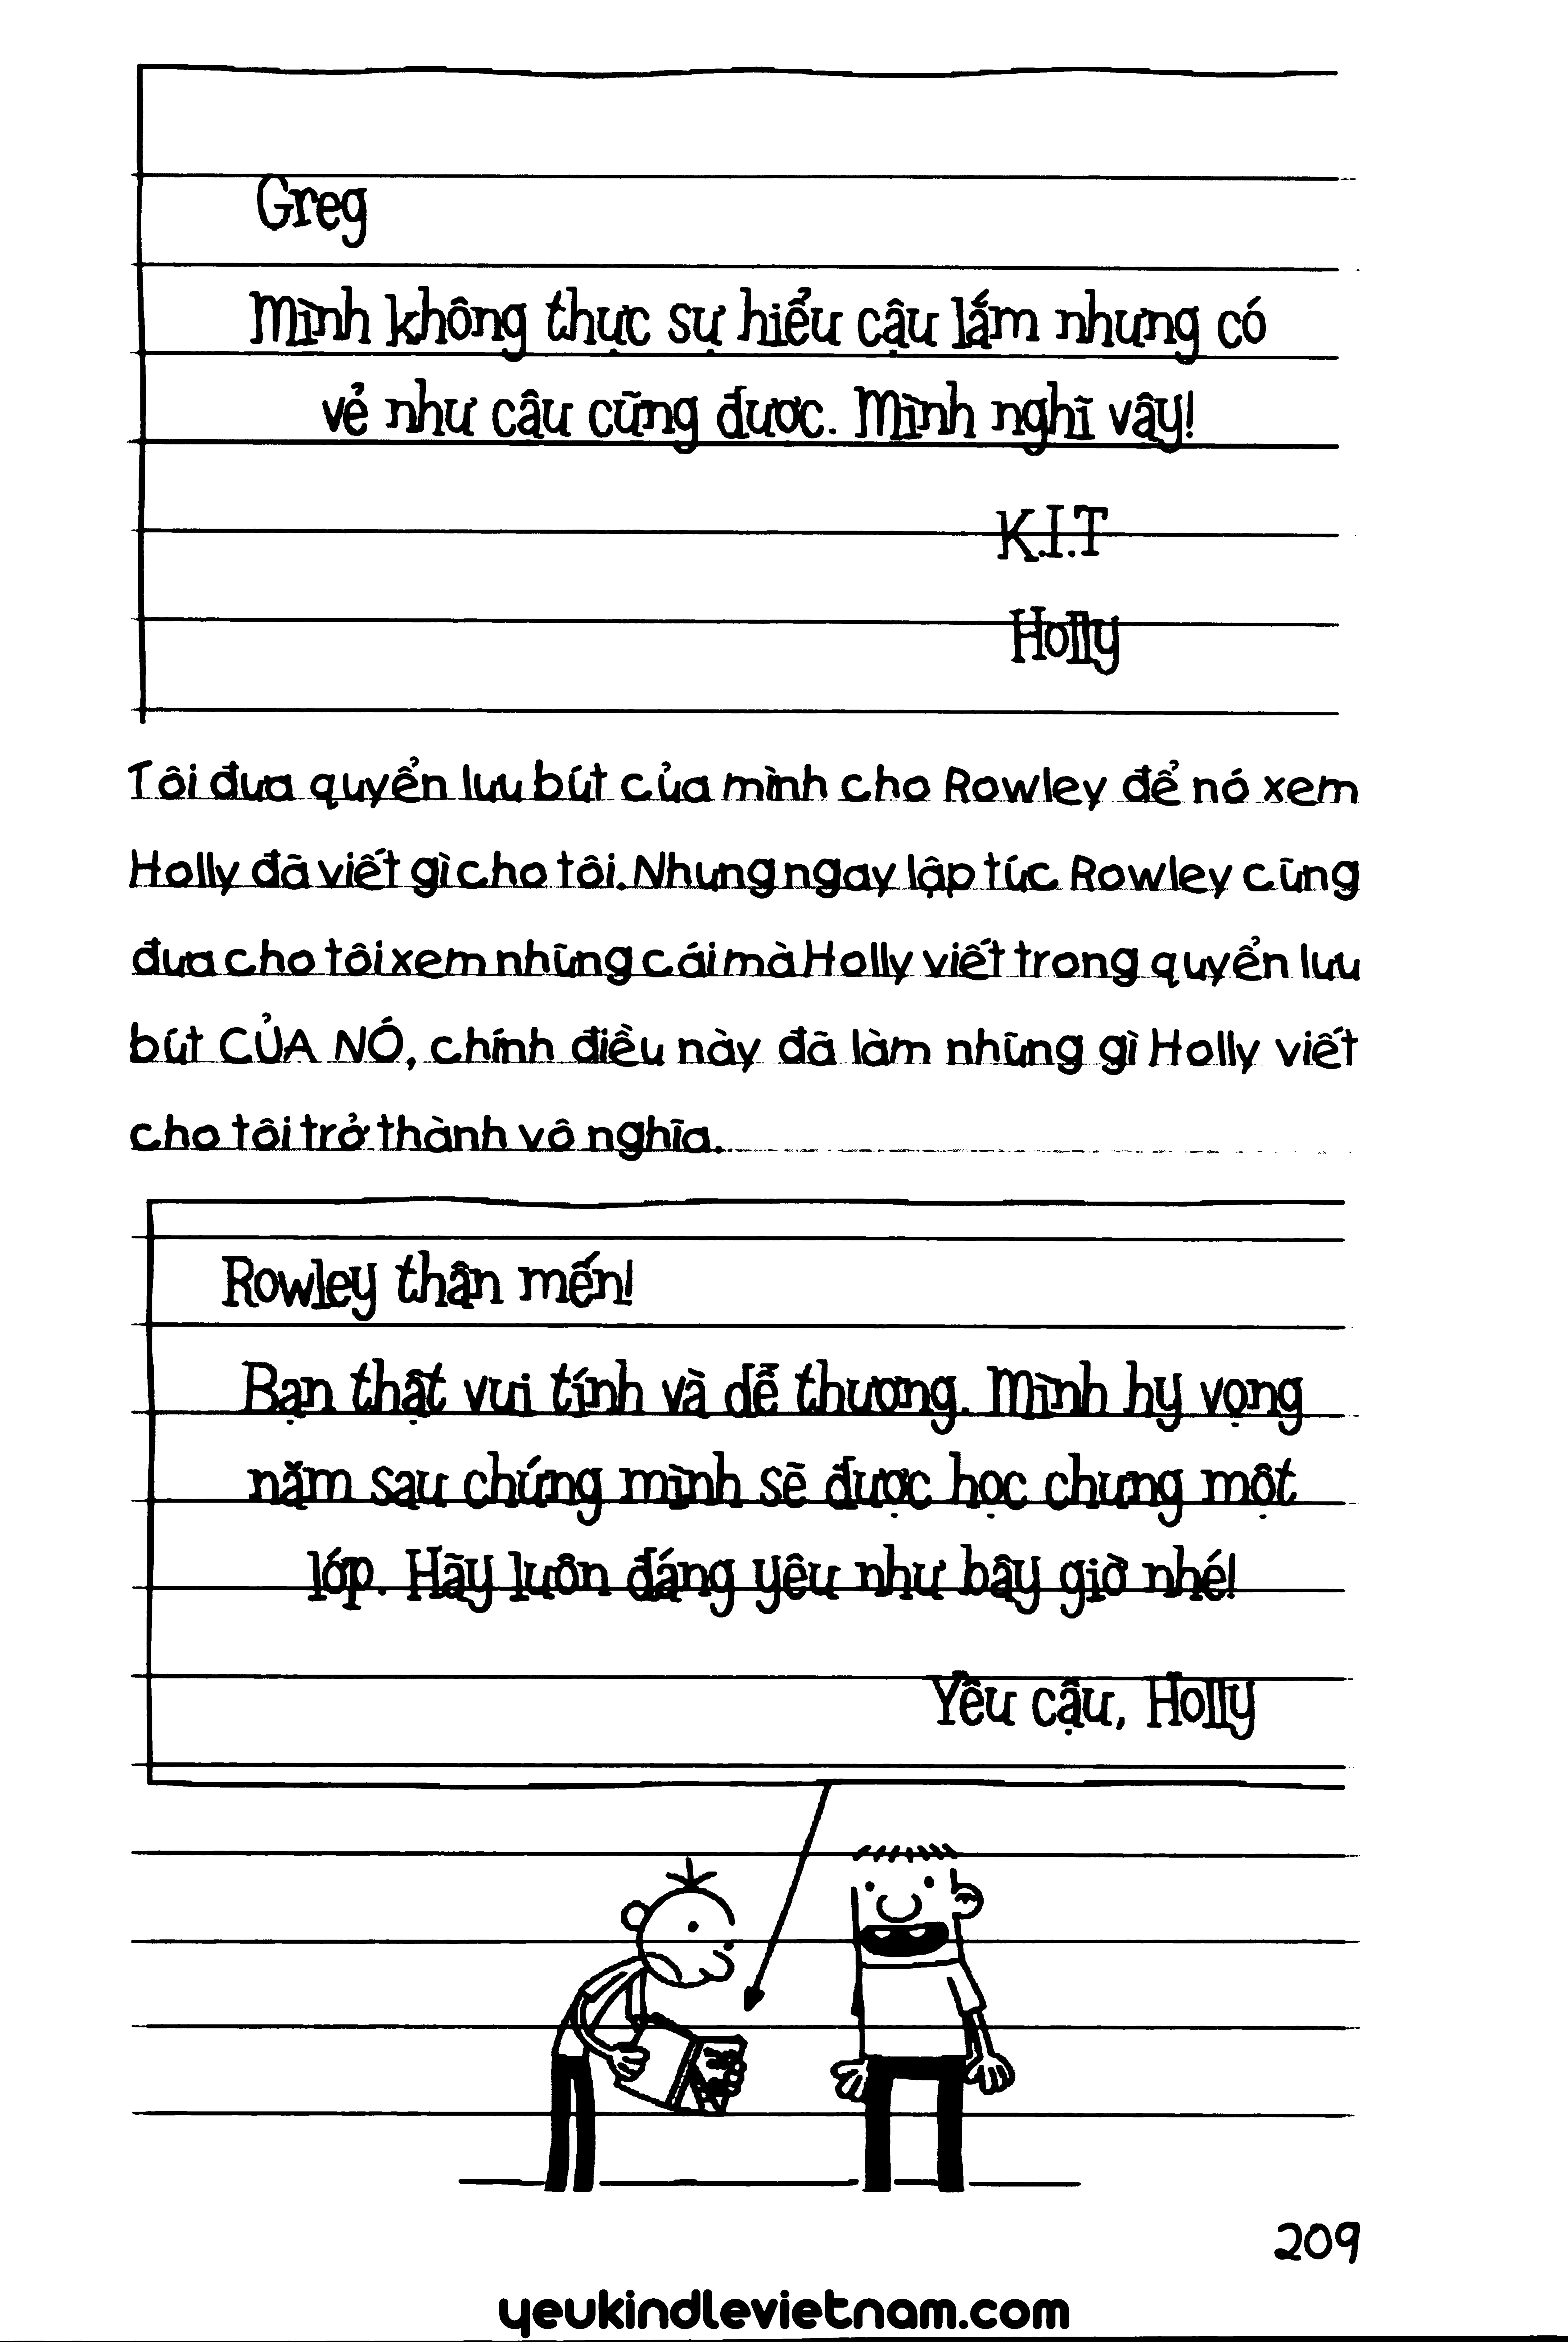 Greg
Mình không thực sự hiểu cậu lắm nhưng có
vẻ như cậu cũng được. Mình nghĩ vậy!
K.I.T
Holly
Tôi đưa quyển lưu bút của mình cho Rowley để nó xem
Holly đã viết gì cho tôi. Nhưng ngay lập tức Rowley cũng
đưa cho tôi xem những cái mà Holly viết trong quyển lưu
bút CỦA NÓ, chính điều này đã làm những gì Holly viết
cho tôi trở thành vô nghĩa.
Rowley thân mến!
Bạn thật vui tính và dễ thương. Mình hy vọng
năm sau chúng mình sẽ được học chung một
lớp. Hãy luôn đáng yêu như bây giờ nhé!
Yêu cậu, Holly
209
yeukindlevietnam.com